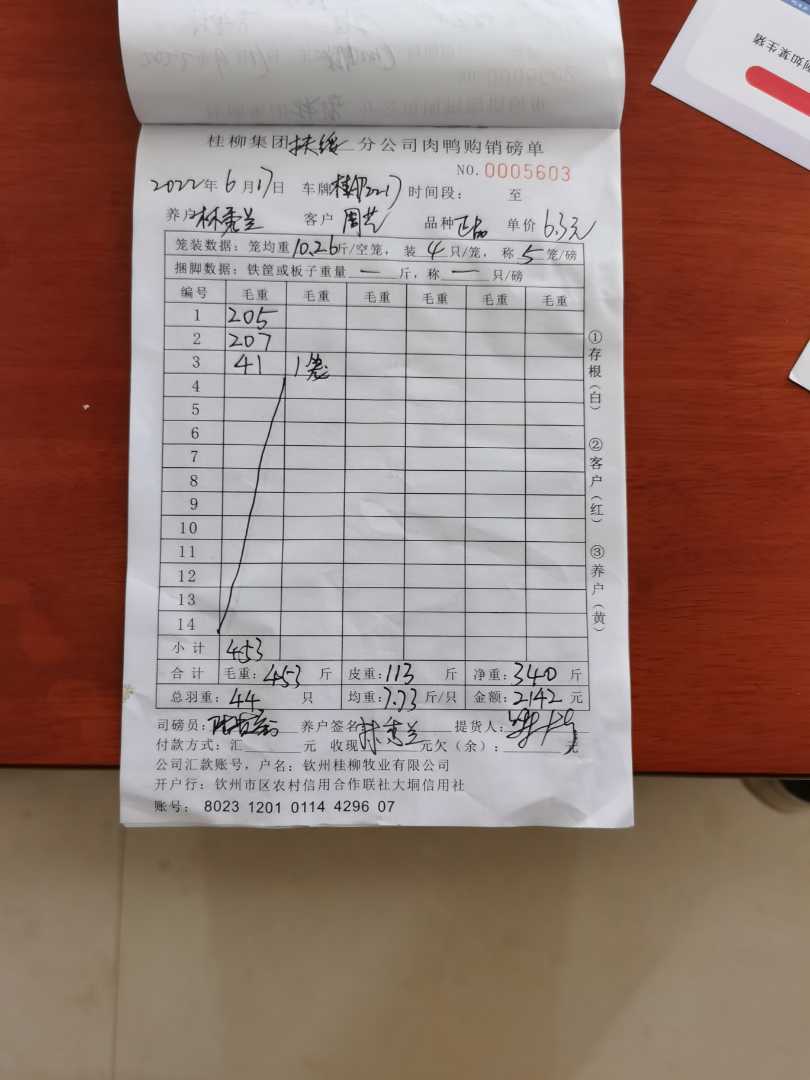 例如某生猪
桂柳集团扶绥分公司肉鸭购销磅单
NO.0005603
2022年6月17日 车牌桂 2217 时间段： 至
养户林秀兰 客户周艺 品种正品 单价6.3元
笼装数据：笼均重10.26斤/空笼，装4只/笼，称5笼/磅
捆脚数据：铁筐或板子重量一斤，称一只/磅
编号 毛重 毛重 毛重 毛重 毛重 毛重
1 205
2 207
3 41 1笼
4
5
6
7
8
9
10
11
12
13
14
小计 453
合计 毛重：453斤 皮重：113斤 净重：340斤
总羽重：44只 均重：7.73斤/只 金额：2142元
司磅员： 养户签名林秀兰 提货人：
付款方式：汇 元 收现 元欠（余）： 元
公司汇款账号，户名：钦州桂柳牧业有限公司
开户行：钦州市区农村信用合作联社大垌信用社
账号： 8023 1201 0114 4296 07
①存根（白）
②客户（红）
③养户（黄）